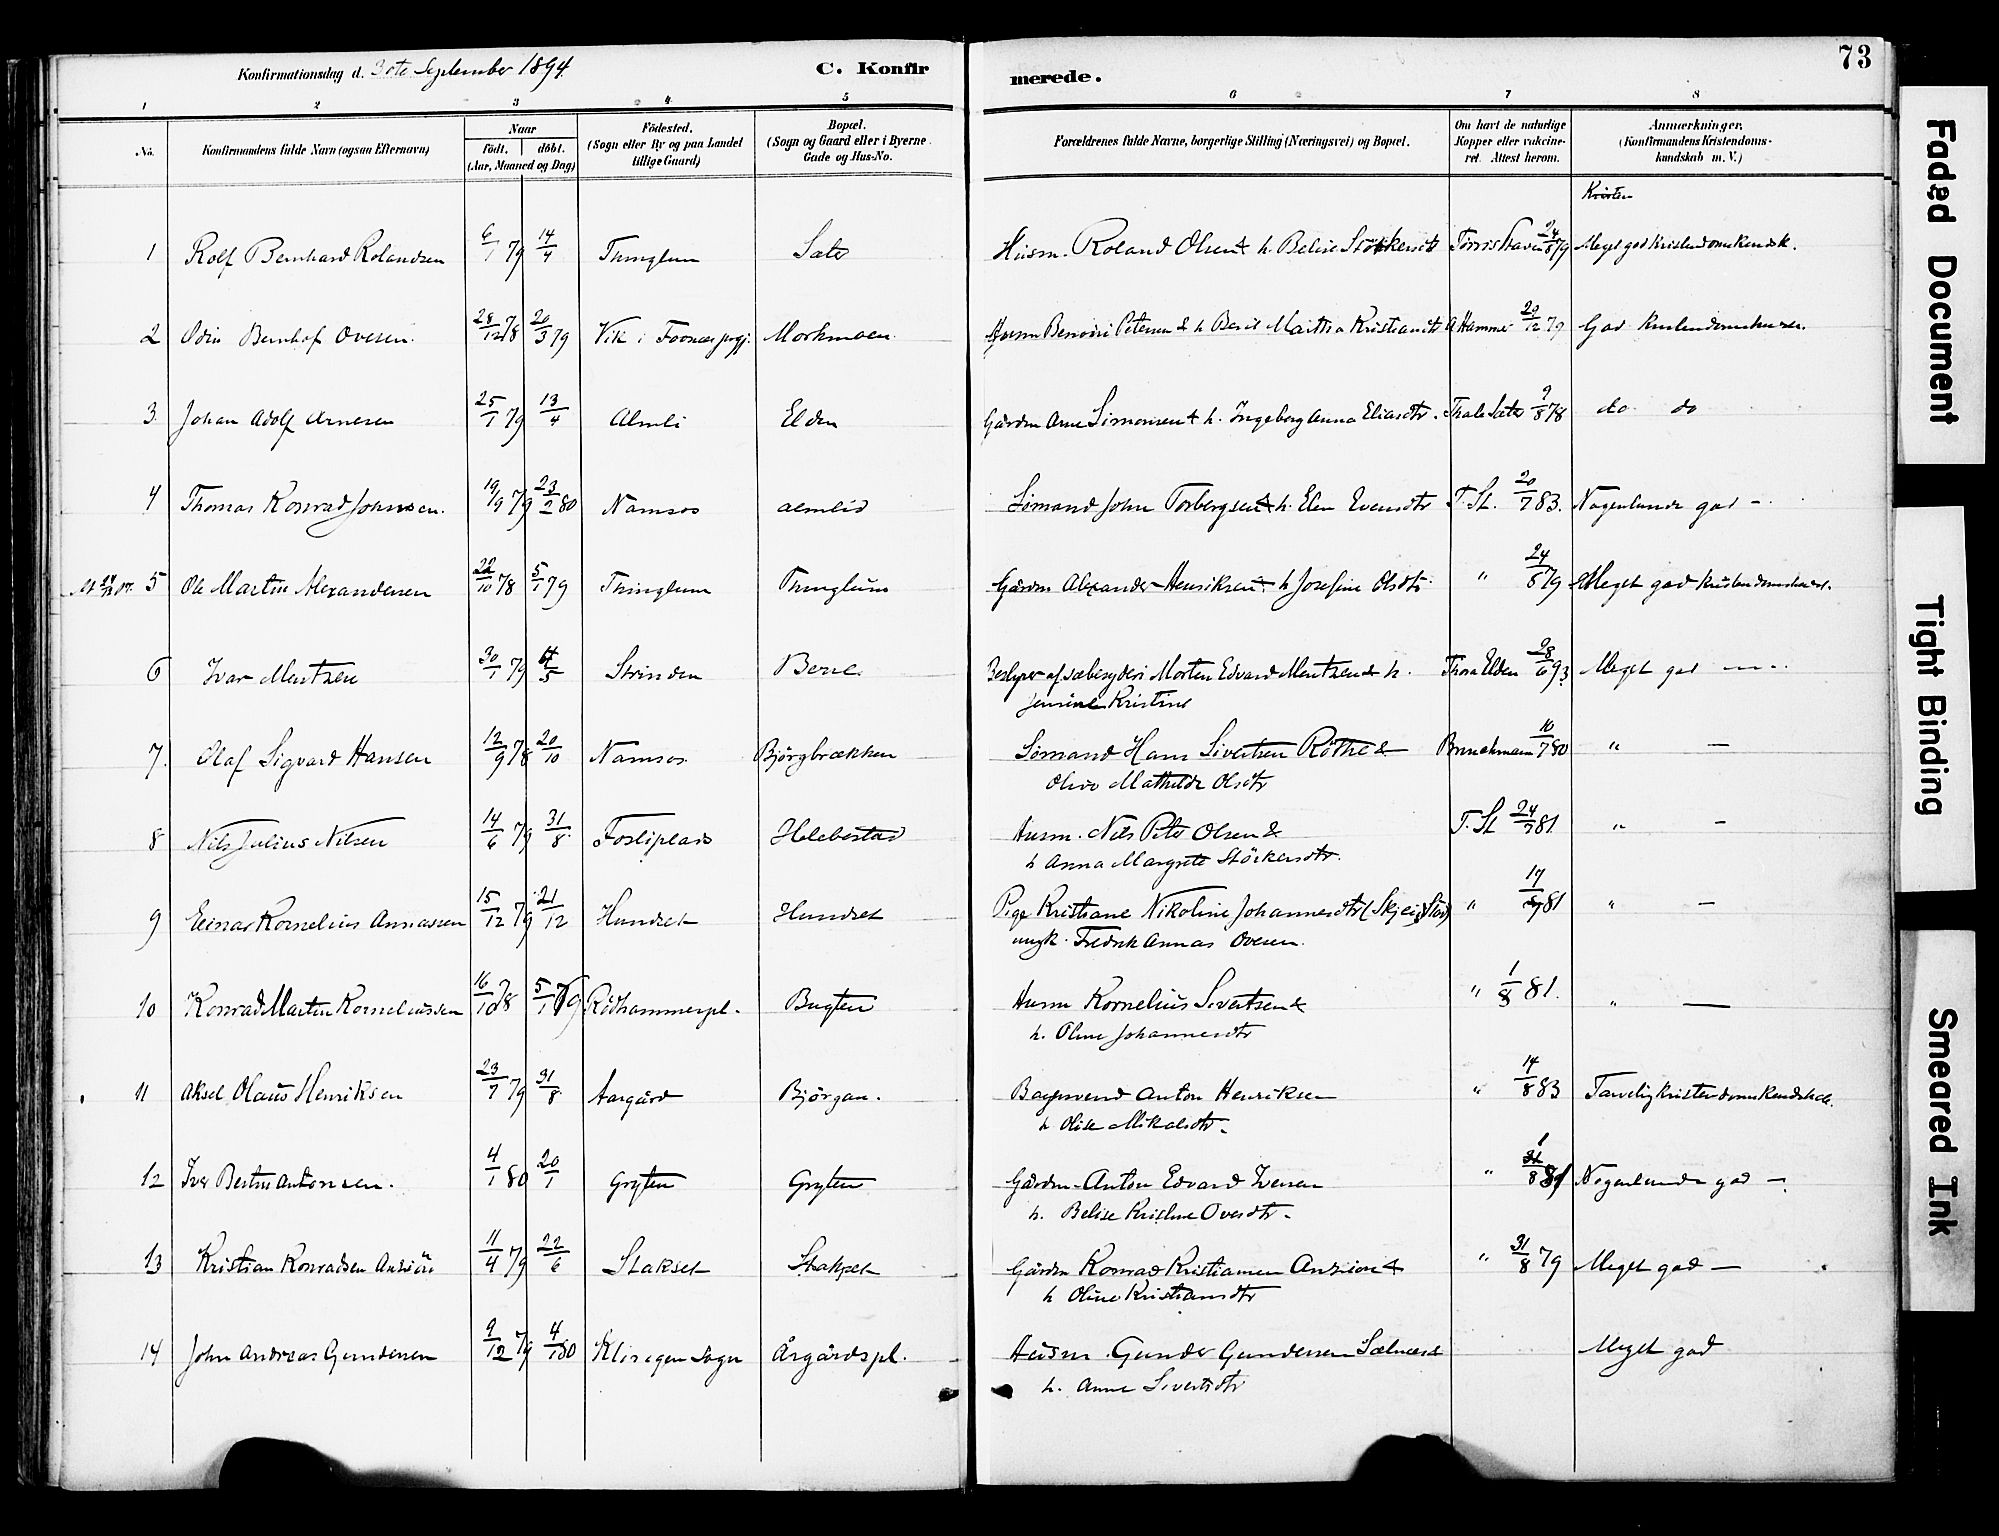 73
Konfirmationsdag d. 30te September 1894.
C. Konfir merede.
1 2 3 4 5 6 7 8
No.
Konfirmandens fulde Navn (ogsaa Efternavn)
Naar
födt. döbt.
(Aar, Maaned og Dag)
Födested.
(Sogn eller By og paa Landet
tillige Gaard)
Bopæl.
(Sogn og Gaard eller i Byerne
Gade og Hus-No.
Forældrenes fulde Navne, borgerlige Stilling (Næringsvei) og Bopæl.
Om havt de naturlige
Kopper eller vakcine-
ret. Attest herom.
Anmærkninger.
(Konfirmandens Kristendoms-
kundskab m. V.)
Kristen
1 Rolf Bernhard Rolandsen 6/1 79 14/4 Thinglum Sæter Husm. Roland Olsen & h. Belise 24/8 79 Meget god Kristendomskundsk.
2 Odin Bernhof Ovesen. 28/12 78 20/3 79 Vik i Morkmoen Husm Petersen & h Berit Martha Kristiansdt A Hammer 29/12 79 God
3. Johan Adolf Arnesen 25/1 79 13/4 Almli Elden Gårdm Arne Simonsen & h. Ingeborg Anna Eliasdtr. Sæter 9/8 78 do do
4 Thomas Konrad Johnsen. 19/9 79 23/2 80 Namsos Almlid Sömand John Torbergsen & h. Elen Evensdtr T. St. 20/7 83. Nogenlunde god –
5 Ole Martin Alexandersen 22/10 78 5/1 79 Thinglum Thinglum Gårdm Alexander Henriksen & h Josefine Olsdtr " 24/8 79 Meget god Kristendomskundsk.
6 Ivar Mentzen 30/1 79 /5 Strinden Berre Bestyrer af sæbesyderi Morten Edvard Mentzen & h. Thora Elden 28/6 93 Meget god – – -
Kristine
7. Olaf Sigvard Hansen 12/9 78 20/10 Namsos Bjørgbrækken Sömand Hans Sivertsen Röthe & 10/7 80 " –
Olive Mathilde Olsdtr
8 Nils Julius Nilsen 14/6 79 31/8 Fosliplads Helebostad Husm. Nils Peter Olsen & T. St 24/7 81. " –
h Anna Margrete Störkersdtr.
9 Einar Kornelius Annassen 15/12 79 21/12 Hundset Hundset Pige Kristiane Nikoline Johannesdtr " 17/ 81 " –
ungk. Fredrik Annas Ovesen.
10 Konrad Martin Korneliussen 16/10 78 5/1 79 Rödhammerpl. Bugten Husm Kornelius Sivertsen & " 1/8 81. " –
h. Oline Johannesdtr
11 Aksel Olaus Henriksen 23/7 79 31/8 Aargård Bjørgan. Anton Henriksen " 14/8 83 Tarvelig kristendomskundskab.
h. Olise Mikalsdtr.
12 Iver Bertin Antonsen. 4/1 80 20/1 Gryten Gryten Gårdm. Anton Edvard Iversen " 1/8 81 Nogenlunde god –
h. Belise Kristine Ovesdtr.
13 Kristian Konradsen Anzion 11/4 79 22/6 Stakset Stakset Gårdm Konrad Kristiansen Anzion & " 31/8 79 Meget god –
h Oline Kristiansdtr
14 John Andreas Gundersen 9/12 79 4/1 80 Klingen Sogn Årgårdspl. Husm. Gunder Gundersen Meget god
h. Anne Sivertsdtr
Faded Document
Tight Binding
Smeared Ink